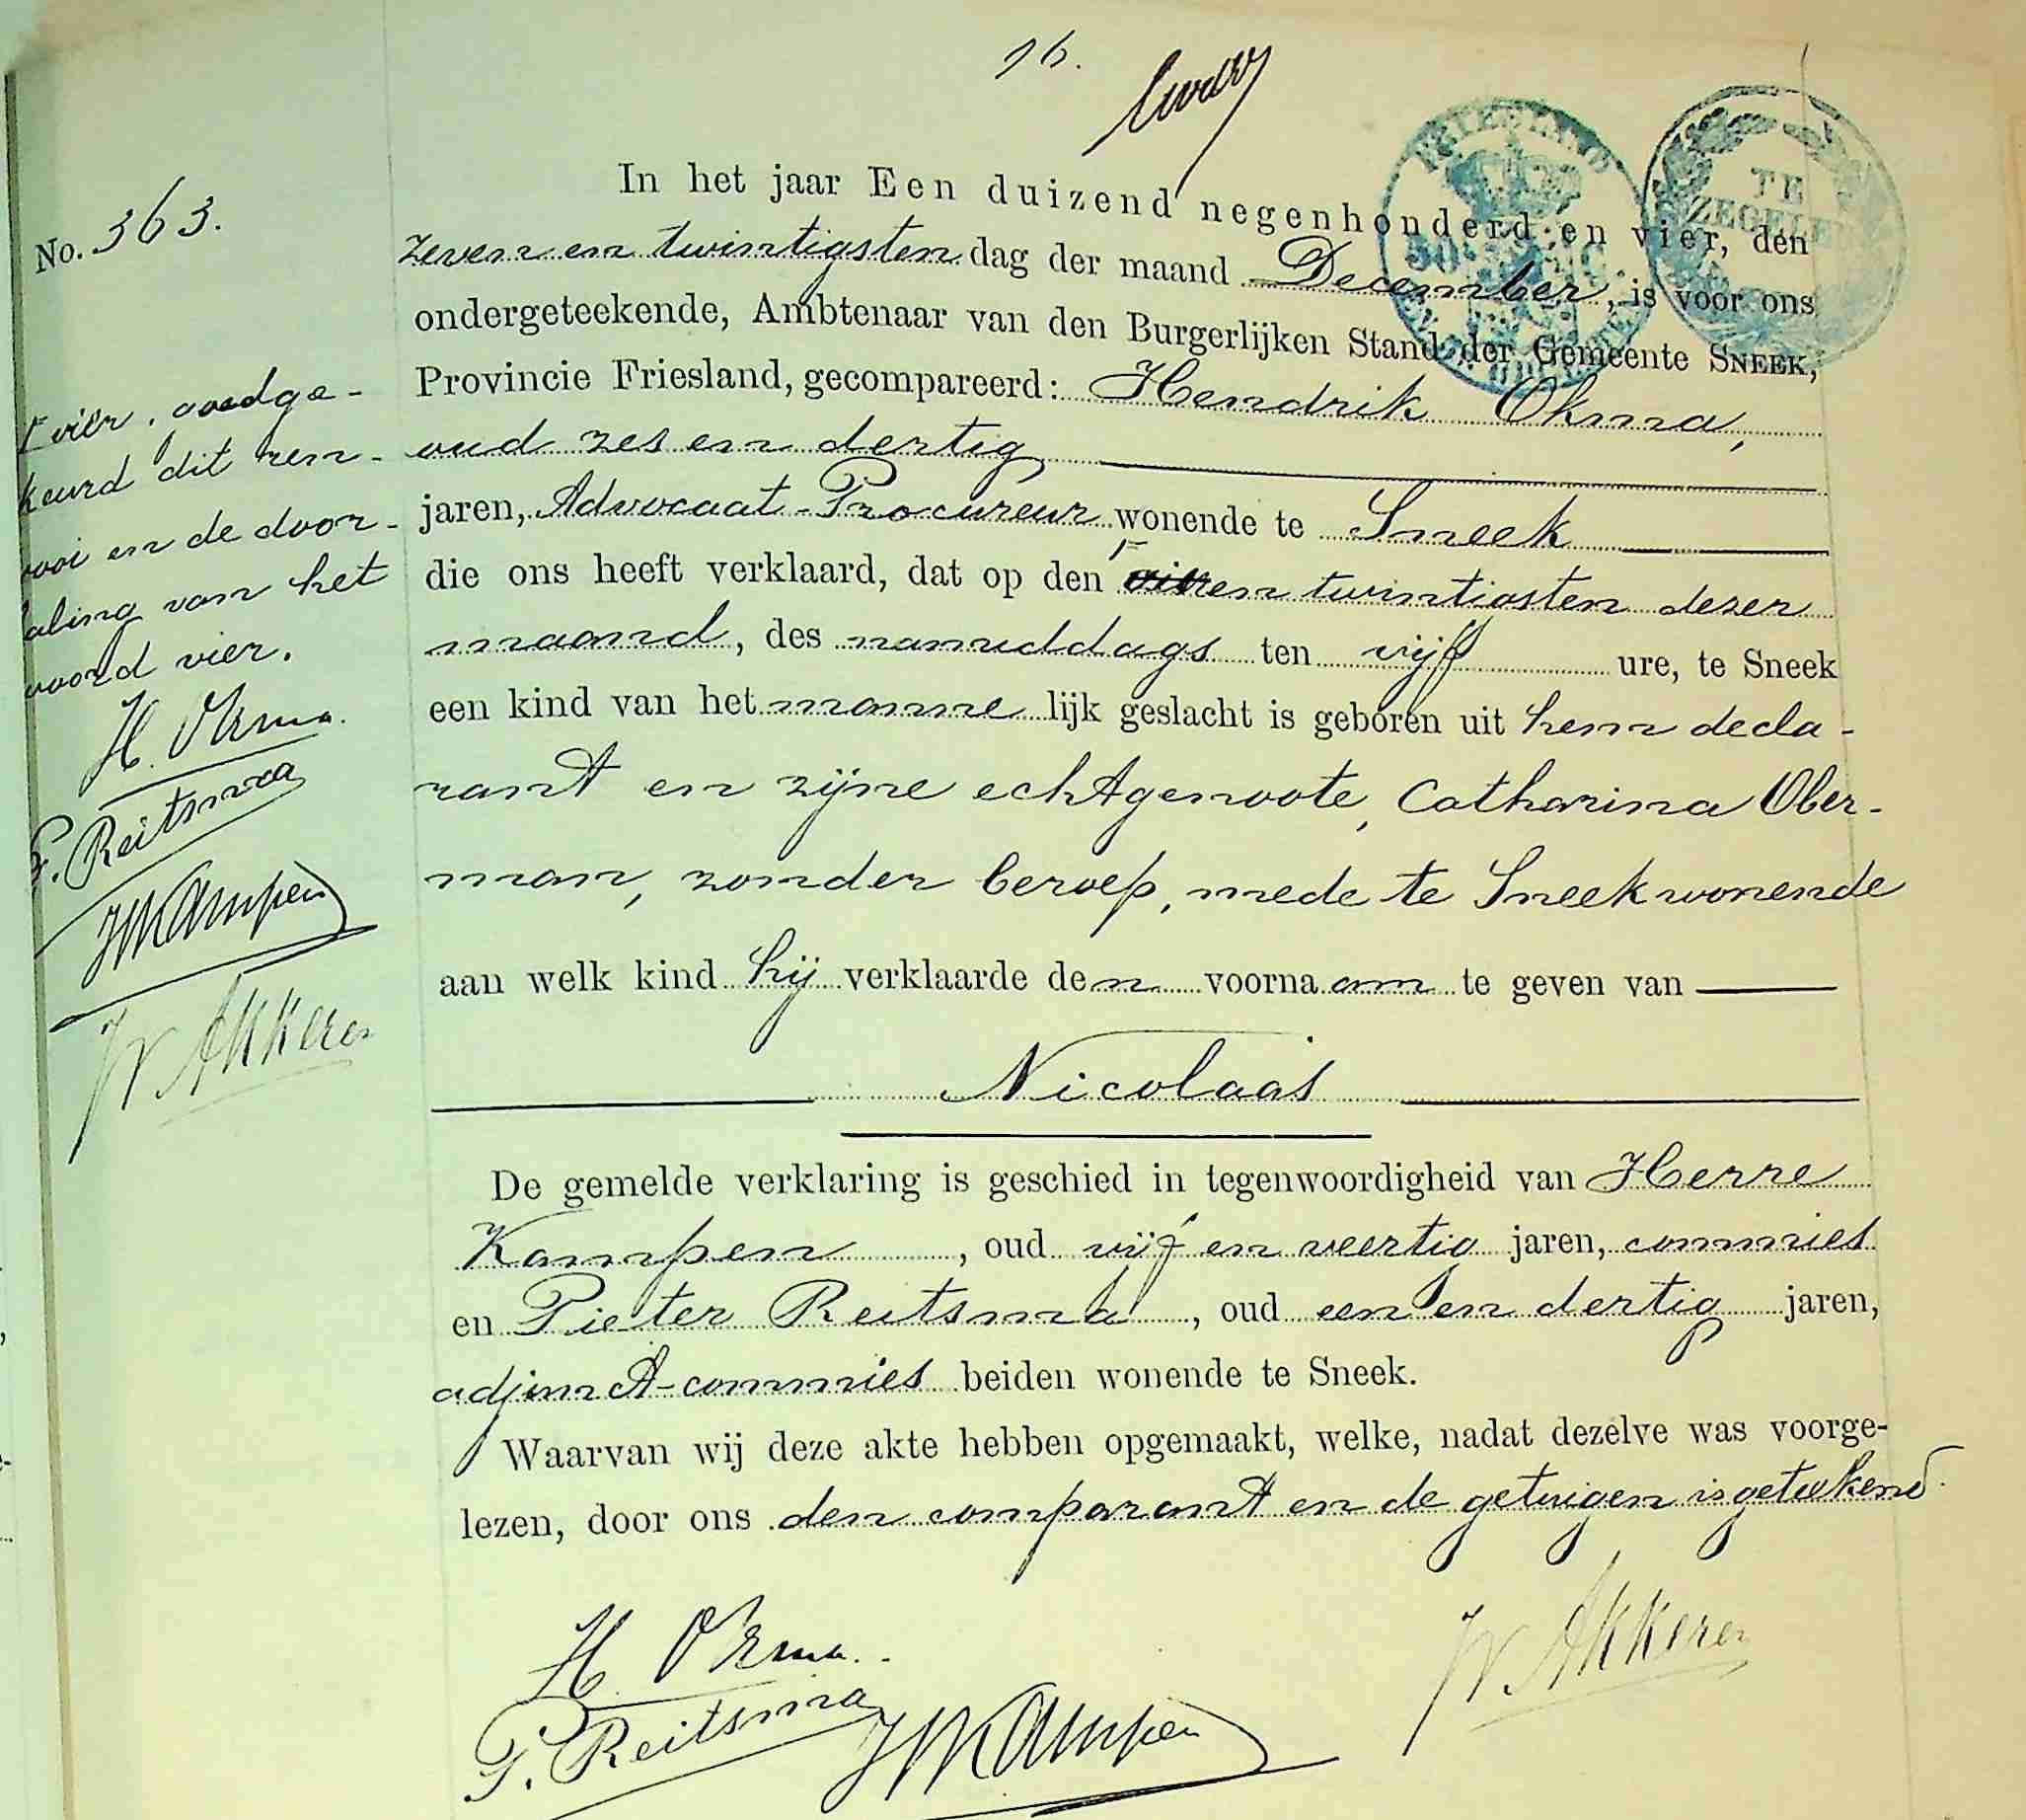 16.
No. 363.
In het jaar Een duizend negenhonderd en vier, den
zeven en twintigsten dag der maand December, is voor ons
ondergeteekende, Ambtenaar van den Burgerlijken Stand der Gemeente SNEEK,
Provincie Friesland, gecompareerd: Hendrik Okma,
oud zes en dertig
jaren, Advocaat-Procureur wonende te Sneek
die ons heeft verklaard, dat op den en twintigsten dezer
maand, des namiddags ten vijf ure, te Sneek
een kind van het manne lijk geslacht is geboren uit hem decla-
rant en zijne echtgenoote, Catharina Ober-
man, zonder beroep, mede te Sneek wonende
aan welk kind hij verklaarde den voornaam te geven van
Nicolaas
De gemelde verklaring is geschied in tegenwoordigheid van Herre
Kampen, oud vijf en veertig jaren, commies
en Pieter Reitsma, oud een en dertig jaren,
adjunct-commies beiden wonende te Sneek.
Waarvan wij deze akte hebben opgemaakt, welke, nadat dezelve was voorge-
lezen, door ons den comparant en de getuigen is geteekend.
H Okma.
P. Reitsma
HKampen
W Akkere
vier, goedge-
keurd dit ren-
vooi en de door-
haling van het
woord vier.
H. Okma.
P. Reitsma
HKampen
W Akkere
FRIESLAND
50
TE
ZEGELEN